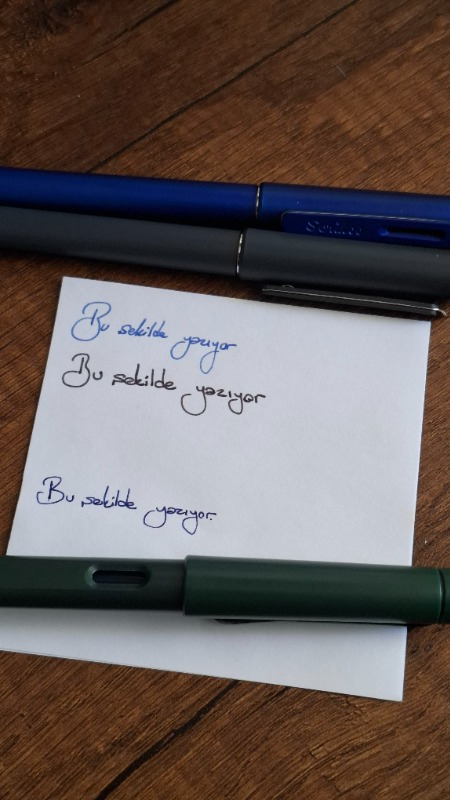 Scrikss
Bu şekilde yazıyor
Bu şekilde yazıyor
Bu şekilde yazıyor.